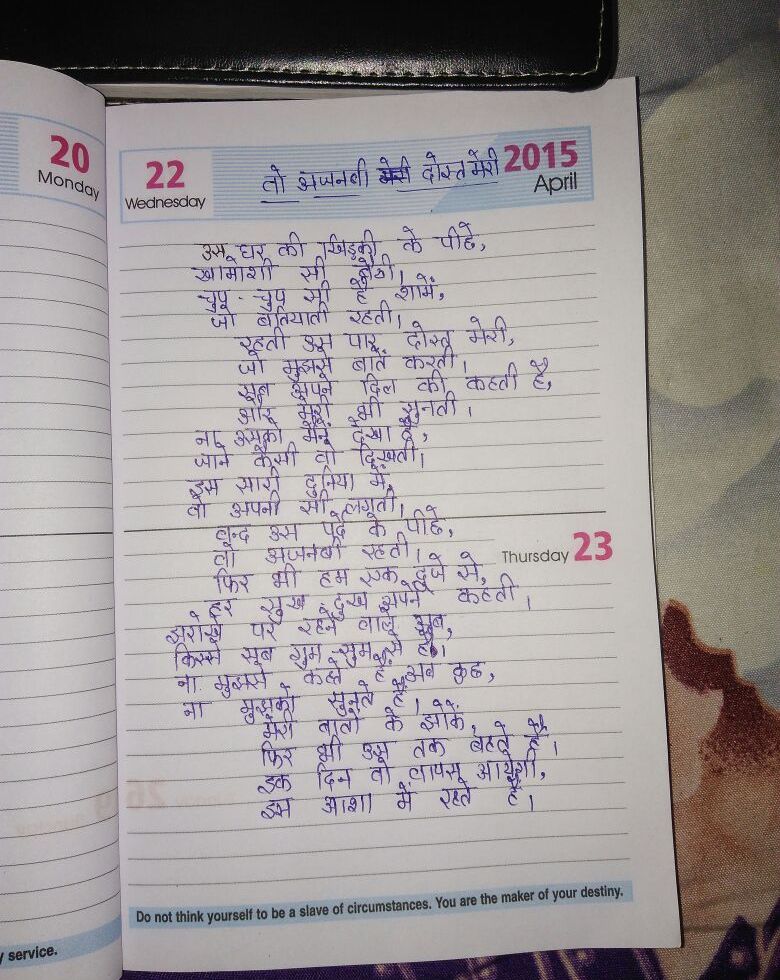 20
Monday
22
Wednesday
तो अजनबी दोस्त मेरी
2015
April
उस घर की खिड़की के पीछे,
खामोशी सी
चुप-चुप सी है शामें,
जो बतियाती रहती।
रहती उस पार दोस्त मेरी,
जो मुझसे बातें करती।
सब अपने दिल की कहती है,
और मेरी भी सुनती।
ना उसको मैंने देखा है,
जाने कैसी वो दिखती।
इस सारी दुनिया में,
वो अपनी सी लगती।
बन्द उस पर्दे के पीछे,
वो अजनबी रहती।
Thursday 23
फिर भी हम एक दूजे से,
हर सुख दुख अपने कहती।
झरोखे पर रहने वाले सब,
किस्से सब गुम-सुम से है।
ना मुझसे कहते हैं अब कुछ,
ना मुझको सुनते हैं।
मेरी बातों के झोंके,
फिर भी उस तक बहते हैं।
इक दिन वो वापस आयेगी,
इस आशा में रहते हैं।
Do not think yourself to be a slave of circumstances. You are the maker of your destiny.
y service.